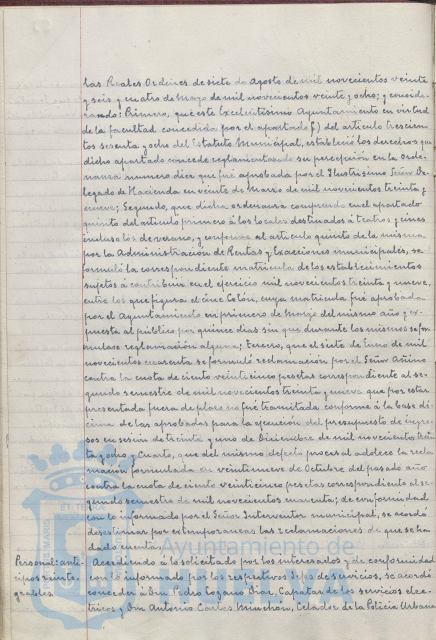 las Reales Ordenes de siete de Agosto de mil novecientos veinte
y seis y cuatro de Mayo de mil novecientos veinte y ocho; y conside-
rando: Primero, que este Excelentisimo Ayuntamiento en virtud
de la facultad concedida por el apartado f) del articulo trescien-
tos sesenta y ocho del Estatuto Municipal, estableció los derechos que
dicho apartado concede reglamentando su percepción en la Orde-
nanza numero diez que fué aprobada por el Ilustrisimo Señor De-
legado de Hacienda en veinte de Marzo de mil novecientos treinta y
nueve; Segundo, que dicha ordenanza comprende en el apartado
quinto del articulo primero á los locales destinados á teatros y cines
incluso los de verano, y conforme al articulo quinto de la misma
por la Administración de Rentas y Exacciones municipales, se
formuló la correspondiente matricula de los establecimientos
sujetos á contribuir en el ejercicio mil novecientos treinta y nueve,
entre los que figura el cine Colón, cuya matricula fué aprobada
por el Ayuntamiento en primero de Marzo del mismo año y ex-
puesta al público por quince dias sin que durante los mismos se for-
mulase reclamación alguna; Tercero, que el siete de Junio de mil
novecientos cuarenta se formuló reclamación por el Señor
contra la cuota de ciento veinticinco pesetas correspondiente al se-
gundo semestre de mil novecientos treinta y nueve que por estar
presentada fuera de plazo no fué tramitada conforme á la base dé-
cima de las aprobadas para la ejecución del presupuesto de ingre-
sos en sesión de treinta y uno de Diciembre de mil novecientos trein-
ta y ocho y Cuarto, que del mismo defecto procesal adolece la recla-
mación formulada en veintinueve de Octubre del pasado año
contra la cuota de ciento veinticinco pesetas correspondiente al se-
gundo semestre de mil novecientos cuarenta; de conformidad
con lo informado por el Señor Interventor municipal, se acordó
desestimar por extemporaneas las reclamaciones de que se ha
dado cuenta.
Personal: anti-
cipos reinte-
grables.
Accediendo á lo solicitado por los interesados y de conformidad
con lo informado por los respectivos Jefes de servicios, se acordó
conceder á Don Pedro Lozano Diaz, Capataz de los servicios eléc-
tricos y Don Antonio Cortés Celador de la Policia Urbana
Ayuntamiento de